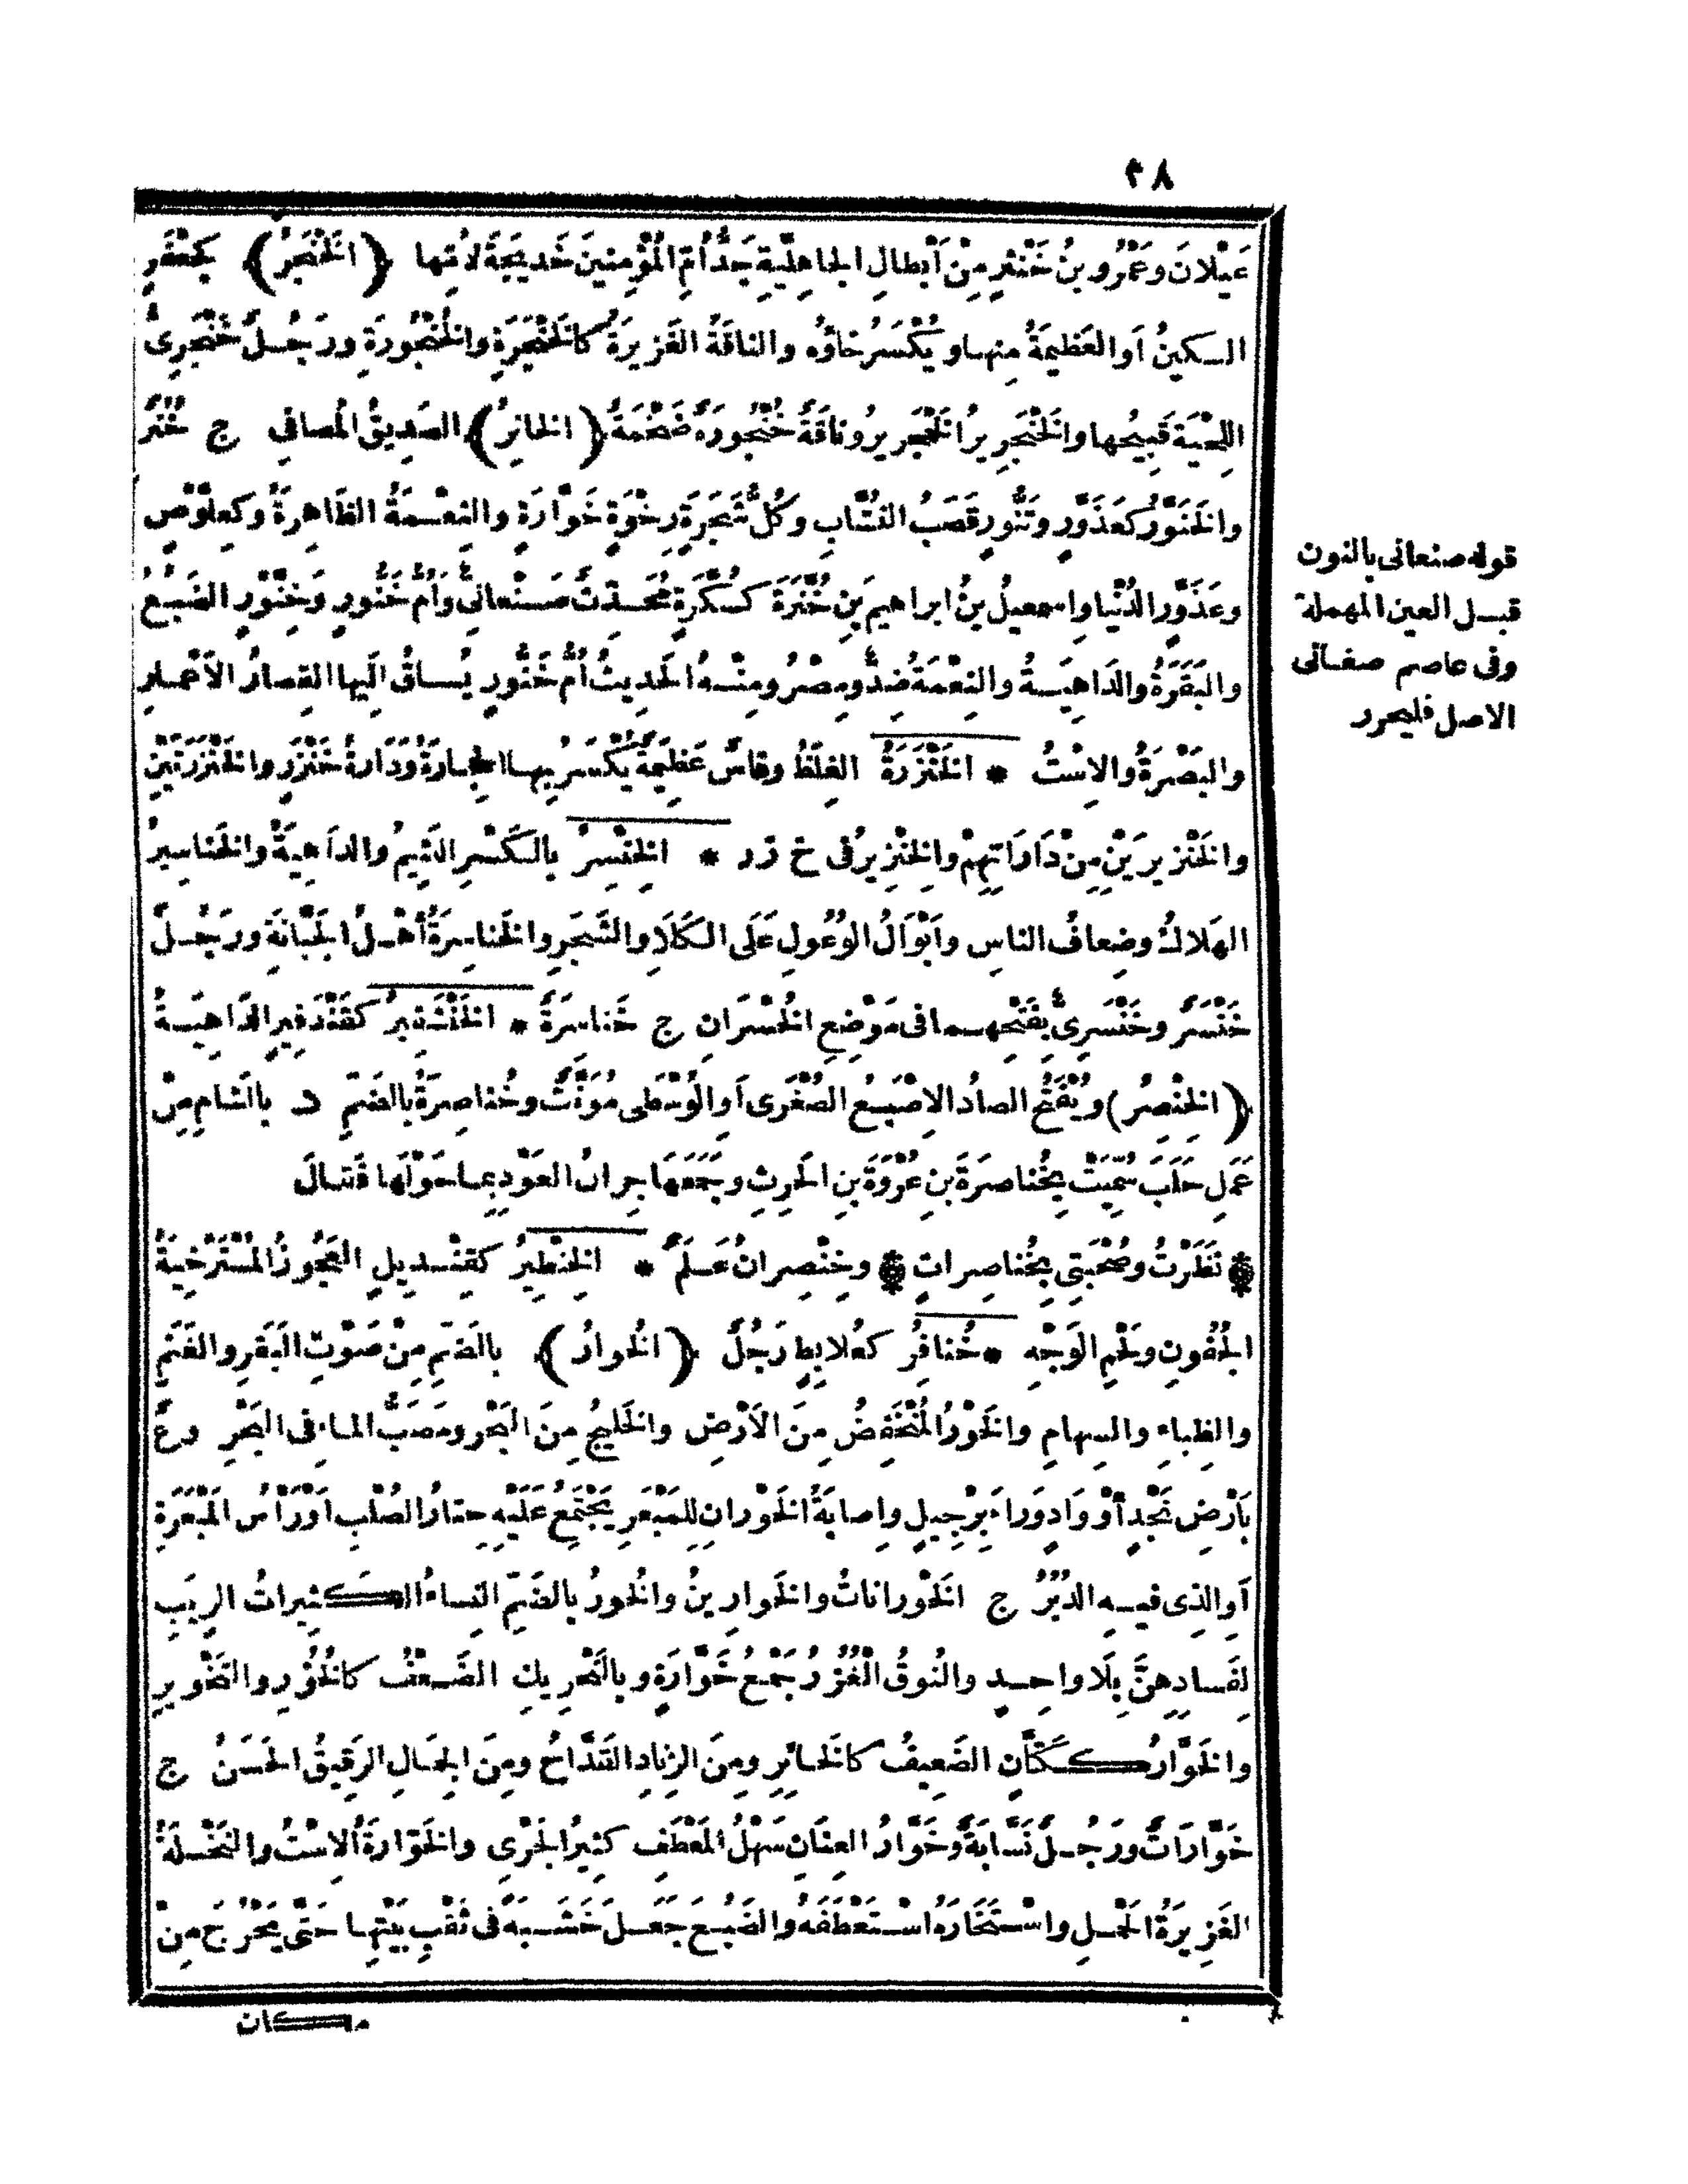 ٢٨
عَيْلانَ وعَمْرُو بنُ خَنْثَرٍ مِنْ أَبْطالِ الجاهِلِيَّةِ جَدُّ أُمِّ المُؤْمِنينَ خَديجَةَ لأُمِّها ﴿ الخَنْجَرُ ﴾ كَجَعْفَرٍ
السكينُ أوالعَظيمَةُ مِنها ويُكْسَرُ خاؤُه والناقَةُ الغَزيرَةُ كالخَنْجَرَةِ والخُنْجُورَةِ ورَجُلٌ خَنْجَرِىُّ
اللِّحْيَةِ قَبِيحُها والخَنْجَرِيرُ الخَمْجَرِيرُ وناقَةٌ خُنْجُورَةٌ ضَخْمَةٌ ﴿ الخانِرُ ﴾ الصَدِيقُ المُصافِى ج خُنُرٌ
والخَنَوَّرُ كعَذَوَّرٍ وتَنُّورٍ قَصَبُ النُشَّابِ وكُلُّ شَجَرَةٍ رِخْوَةٍ خَوَّارَةٍ والنِعْمَةُ الظَاهِرَةُ وكعِلَّوْصٍ
وعَذَوَّرٍ الدُنْيا وإسمعيلُ بنُ ابراهيمَ بنِ خُنَّرَةَ كسُكَّرَةٍ مُحَدِّثٌ صَنْعانِىٌّ وَأُمُّ خَنُّورٍ وَخِنَّوْرٍ الضَبُعُ
والبَقَرَةُ والدَاهِيَةُ والنِعْمَةُ ضِدٌّ ومِصْرُ ومِنْهُ الحَدِيثُ أُمُّ خَنُّورٍ يُساقُ إلَيها القِصارُ الأَعْمارِ
والبَصْرَةُ والاِسْتُ * الخَنْزَرَةُ الغِلَظُ وفاسٌ عَظِيمَةٌ يُكْسَرُ بِها الحِجارَةُ وَدَارَةُ خَنْزَرٍ والخَنْزَرَتَيْنِ
والخَنْزيرَيْنِ مِنْ دَارَاتِهِمْ والخِنْزِيرُ فى خ ز ر * الخِنْسِرُ بالكَسْرِ اللَّئِيمُ والداَهِيَةُ والخَناسِيرُ
الهَلاكُ وضِعافُ الناسِ وأَبْوَالُ الوُعُولِ عَلَى الكَلَإِ والشَجَرِ والخَناسِرَةُ أَهْلُ الجَبَّانَةِ ورَجُلٌ
خَنْسَرٌ وخَنْسَرِىٌّ بفَتْحِهِما فى مَوْضِعِ الخُسْرَانِ ج خَناسِرَةٌ * الخَنْشَفِيرُ كقَنْدَفِيرٍ الدَاهِيَةُ
﴿ الخِنْصِرُ ﴾ ويُفْتَحُ الصادُ الاِصْبَعُ الصُغْرَى أَوِ الوُسْطَى مُؤَنَّثٌ وخُناصِرَةُ بالضَمِّ د بالشامِ مِنْ
عَمَلِ حَلَبَ سُمِّيَتْ بِخُناصِرَةَ بنِ عُرْوَةَ بنِ الحَرِثِ وجَمَعَهَا جِرانُ العَوْدِ بِما حَوْلَها فَقالَ
* نَظَرْتُ وصُحْبَتِى بِخُناصِراتٍ * وخِنْصِرانُ عَلَمٌ * الخِنْطِيرُ كقِنْدِيلٍ العَجُوزُ المُسْتَرْخِيَةُ
الجُفُونِ ولَحْمِ الوَجْهِ * خُنافِرُ كعُلابِطٍ رَجُلٌ ﴿ الخُوارُ ﴾ بالضَمِّ مِنْ صَوْتِ البَقَرِ والغَنَمِ
والظِباءِ والسِهامِ والخَوْرُ المُنْخَفِضُ مِنَ الأَرْضِ والخَلِيجُ مِنَ البَحْرِ ومَصَبُّ الماءِ فى البَحْرِ وع
بأَرْضِ نَجْدٍ أَوْ وَادٍ وَراءَ بِرْجِيلٍ وإصابَةُ الخَوْرانِ لِلمَبْعَرِ يَجْتَمِعُ عَلَيْهِ حِتارُ الصُلْبِ أَوْرَأْسُ المَبْعَرَةِ
أَوِالذِى فيهِ الدُبُرُ ج الخَوْراناتُ والخَوارِينُ والخُورُ بالضَمِّ النِساءُ الكثِيراتُ الرِيَبِ
لِفَسادِهِنَّ بِلَا واحِدٍ والنُوقُ الْغُزْرُ جَمْعُ خَوَّارَةٍ وبالتَحْرِيكِ الضَعْفُ كالخُؤُرِ والتَخْوِيرِ
والخَوَّارُ ككَتَّانٍ الضَعِيفُ كالخائِرِ ومِنَ الزِنادِ القَدَّاحُ ومِنَ الجِمَالِ الرَقِيقُ الحَسَنُ ج
خَوَّارَاتٌ ورَجُلٌ نَسَّابَةٌ وخَوَّارُ العِنَانِ سَهْلُ المَعْطَفِ كثِيرُ الجَرْىِ والخَوَّارَةُ الاِسْتُ والنَخْلَةُ
الغَزِيرَةُ الحَمْلِ واسْتَخَارَهُ اسْتَعْطَفَهُ والضَبُعَ جَعَلَ خَشَبَةً فى ثَقْبِ بَيْتِها حَتَّى يَخْرُجَ مِنْ
مكان
قوله صنعانى بالنون
قبل العين المهملة
وفى عاصم صغانى
الاصل فليحرر